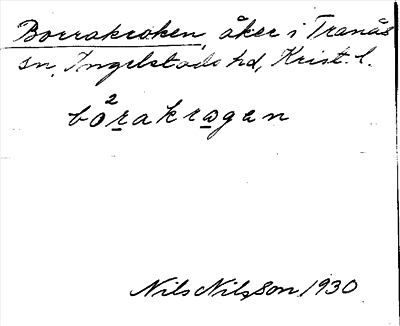 Borrakroken, åker i Tranås
sn, Ingelstads hd, Krist. l.
bo²rakrogan
Nils Nilsson 1930